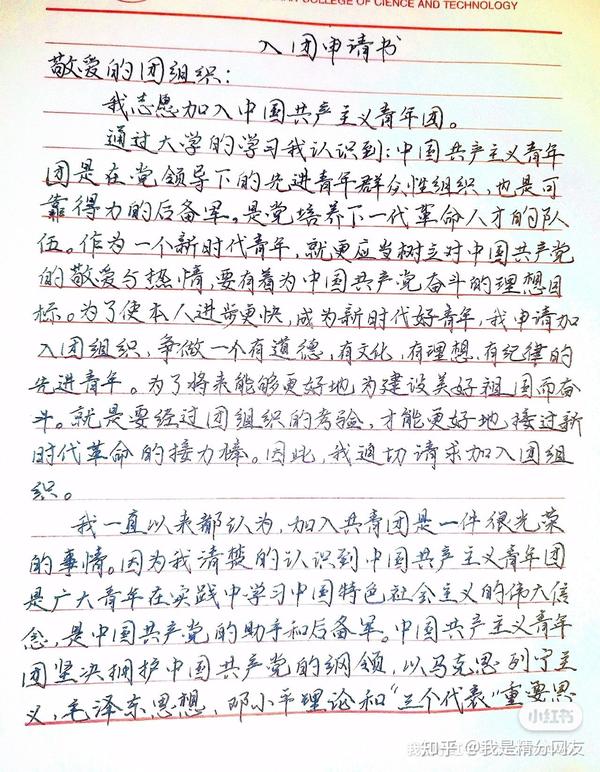 COLLEGE OF CIENCE AND TECHNOLOGY
入团申请书
敬爱的团组织：
我志愿加入中国共产主义青年团。
通过大学的学习我认识到：中国共产主义青年
团是在党领导下的先进青年群众性组织，也是可
靠得力的后备军。是党培养下一代革命人才的队
伍。作为一个新时代青年，就更应当树立对中国共产党
的敬爱与热情，要有着为中国共产党奋斗的理想目
标。为了使本人进步更快，成为新时代好青年，我申请加
入团组织，争做一个有道德，有文化，有理想，有纪律的
先进青年。为了将来能够更好地为建设美好祖国而奋
斗。就是要经过团组织的考验，才能更好地接过新
时代革命的接力棒。因此，我迫切请求加入团组
织。
我一直以来都认为，加入共青团是一件很光荣
的事情。因为我清楚的认识到中国共产主义青年团
是广大青年在实践中学习中国特色社会主义的伟大信
念，是中国共产党的助手和后备军。中国共产主义青年
团坚决拥护中国共产党的纲领，以马克思列宁主
义，毛泽东思想，邓小平理论和“三个代表”重要思
小红书
知乎@我是精分网友